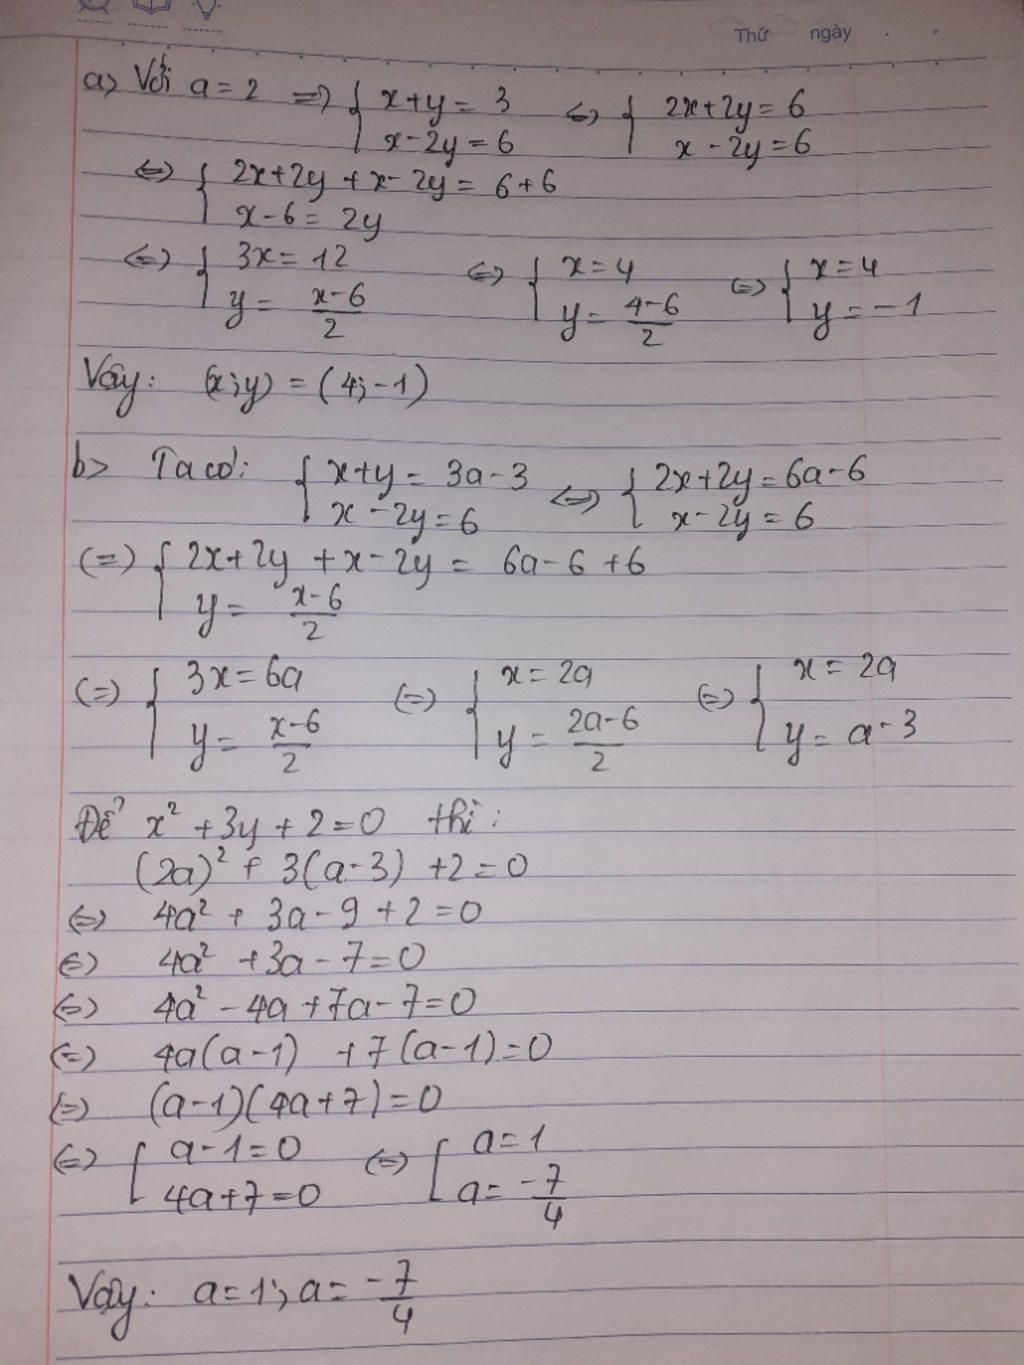 Thứ ngày
a) Với a = 2 => { x+y = 3 <=> { 2x+2y = 6
x-2y = 6 x-2y = 6
<=> { 2x+2y + x-2y = 6+6
x-6 = 2y
<=> { 3x = 12 <=> { x = 4 <=> { x = 4
y = (x-6)/2 y = (4-6)/2 y = -1
Vậy: (x;y) = (4;-1)
b> Ta có: { x+y = 3a-3 <=> { 2x+2y = 6a-6
x-2y = 6 x-2y = 6
(=) { 2x+2y + x-2y = 6a-6+6
y = (x-6)/2
(=) { 3x = 6a (=) { x = 2a (=) { x = 2a
y = (x-6)/2 y = (2a-6)/2 y = a-3
Để x² + 3y + 2 = 0 thì:
(2a)² + 3(a-3) + 2 = 0
<=> 4a² + 3a - 9 + 2 = 0
(=) 4a² + 3a - 7 = 0
(=) 4a² - 4a + 7a - 7 = 0
(=) 4a(a-1) + 7(a-1) = 0
(=) (a-1)(4a+7) = 0
<=> [ a-1 = 0 (=) [ a = 1
4a+7 = 0 a = -7/4
Vậy: a = 1; a = -7/4